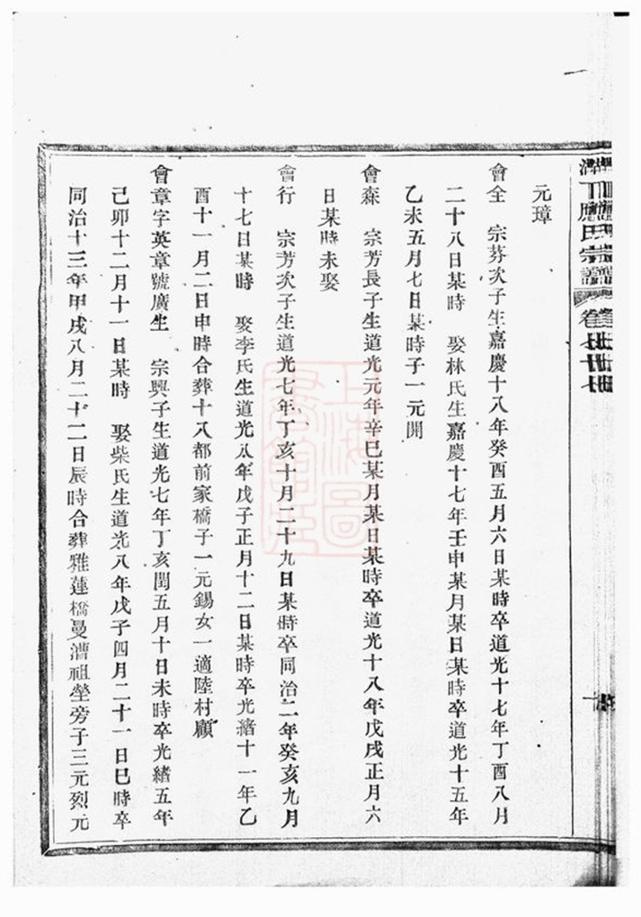 氏宗譜 卷
元璋
會全 宗芬次子生嘉慶十八年癸酉五月六日某時卒道光十七年丁酉八月
二十八日某時 娶林氏生嘉慶十七年壬申某月某日某時卒道光十五年
乙未五月七日某時子一元開
會森 宗芳長子生道光元年辛巳某月某日某時卒道光十八年戊戌正月六
日某時未娶
會行 宗芳次子生道光七年丁亥十月二十九日某時卒同治二年癸亥九月
十七日某時 娶李氏生道光八年戊子正月十二日某時卒光緒十一年乙
酉十一月二日申時合葬十八都前家橋子一元錫女一適陸村顧
會章字英章號廣生 宗興子生道光七年丁亥閏五月十日未時卒光緒五年
己卯十二月十一日某時 娶柴氏生道光八年戊子四月二十一日巳時卒
同治十三年甲戌八月二十二日辰時合葬雅蓮橋曼漕祖塋旁子三元烈元
上海圖